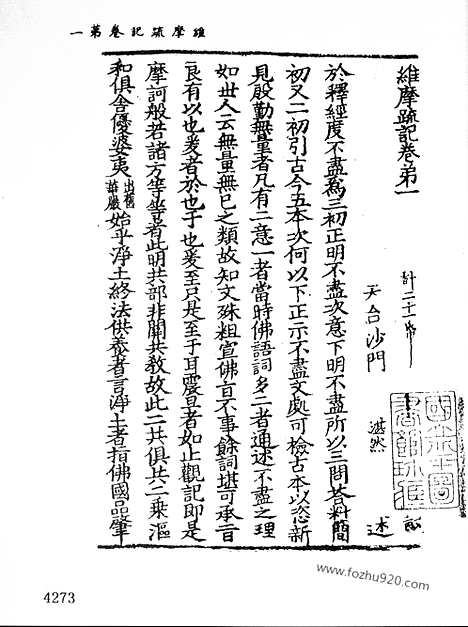 維摩疏記卷第一
維摩疏記卷第一
計二十一帋
天台沙門
湛然
述
於釋經度不盡為三初正明不盡次意下明不盡所以三問荅料簡
初又二初引古今五本次何以下正示不盡文處可檢古本以恣新
見殷勤無量者凡有二意一者當時佛語詞多二者通述不盡之理
如世人云無量無已之類故知文殊粗宣佛旨不事餘詞堪可承旨
良有以也爰者於也于也爰至只是至于耳震旦者如止觀記即是
摩訶般若諸方等等者此明共部非關共教故此二共俱共二乘漚
和俱舍優婆夷出舊華嚴始乎淨土終法供養者言淨土者指佛國品肇
4273
www.fozhu920.com